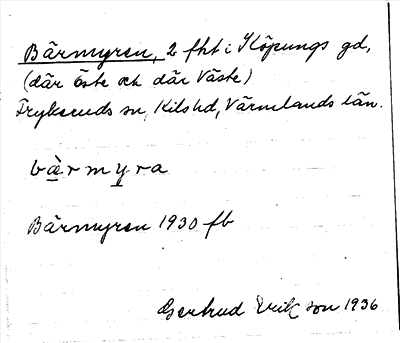 Bärmyren, 2 fht i Köpungs gd,
(där Öste och där Väste)
Frykeruds sn, Kils hd, Värmlands län.
bàrmyra
Bärmyren 1930 fb
Gertrud Ericson 1936